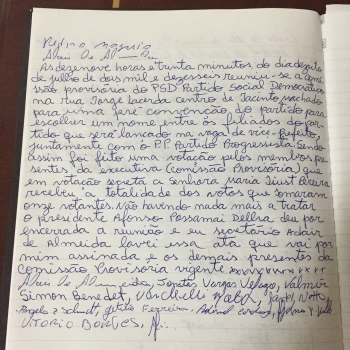 As dezenove horas e trinta minutos, do dia dezoito
de julho de dois mil e dezesseis reuniu-se a comi
ssão provisória do PSD Partido Social Democrático
na rua Jorge Lacerda centro de Jacinto machado
para uma pré convenção do partido para
escolher um nome entre os filiados do par
tido que será lançado na vaga de vice-Prefeito,
juntamente com o P.P. Partido Progressista. Sendo
assim foi feito uma votação pelos membros pre
sentes, da executiva (comissão Provisória) que
em votação secreta a senhora Maria
recebeu a totalidade dos votos que somaram
onze votantes. Não havendo mada mais a tratar
o presidente Afonso Possamai Dellra deu por
encerrada a reunião e eu secretário Adair
de Almeida lavrei essa ata que vai por
mim assinada e os demais presentes da
Comissão Provisoria vigente
Jonatas Vargas Valmir
Simon Benedet,
Schmitt, Ferreira,
VITORIO BORGES,